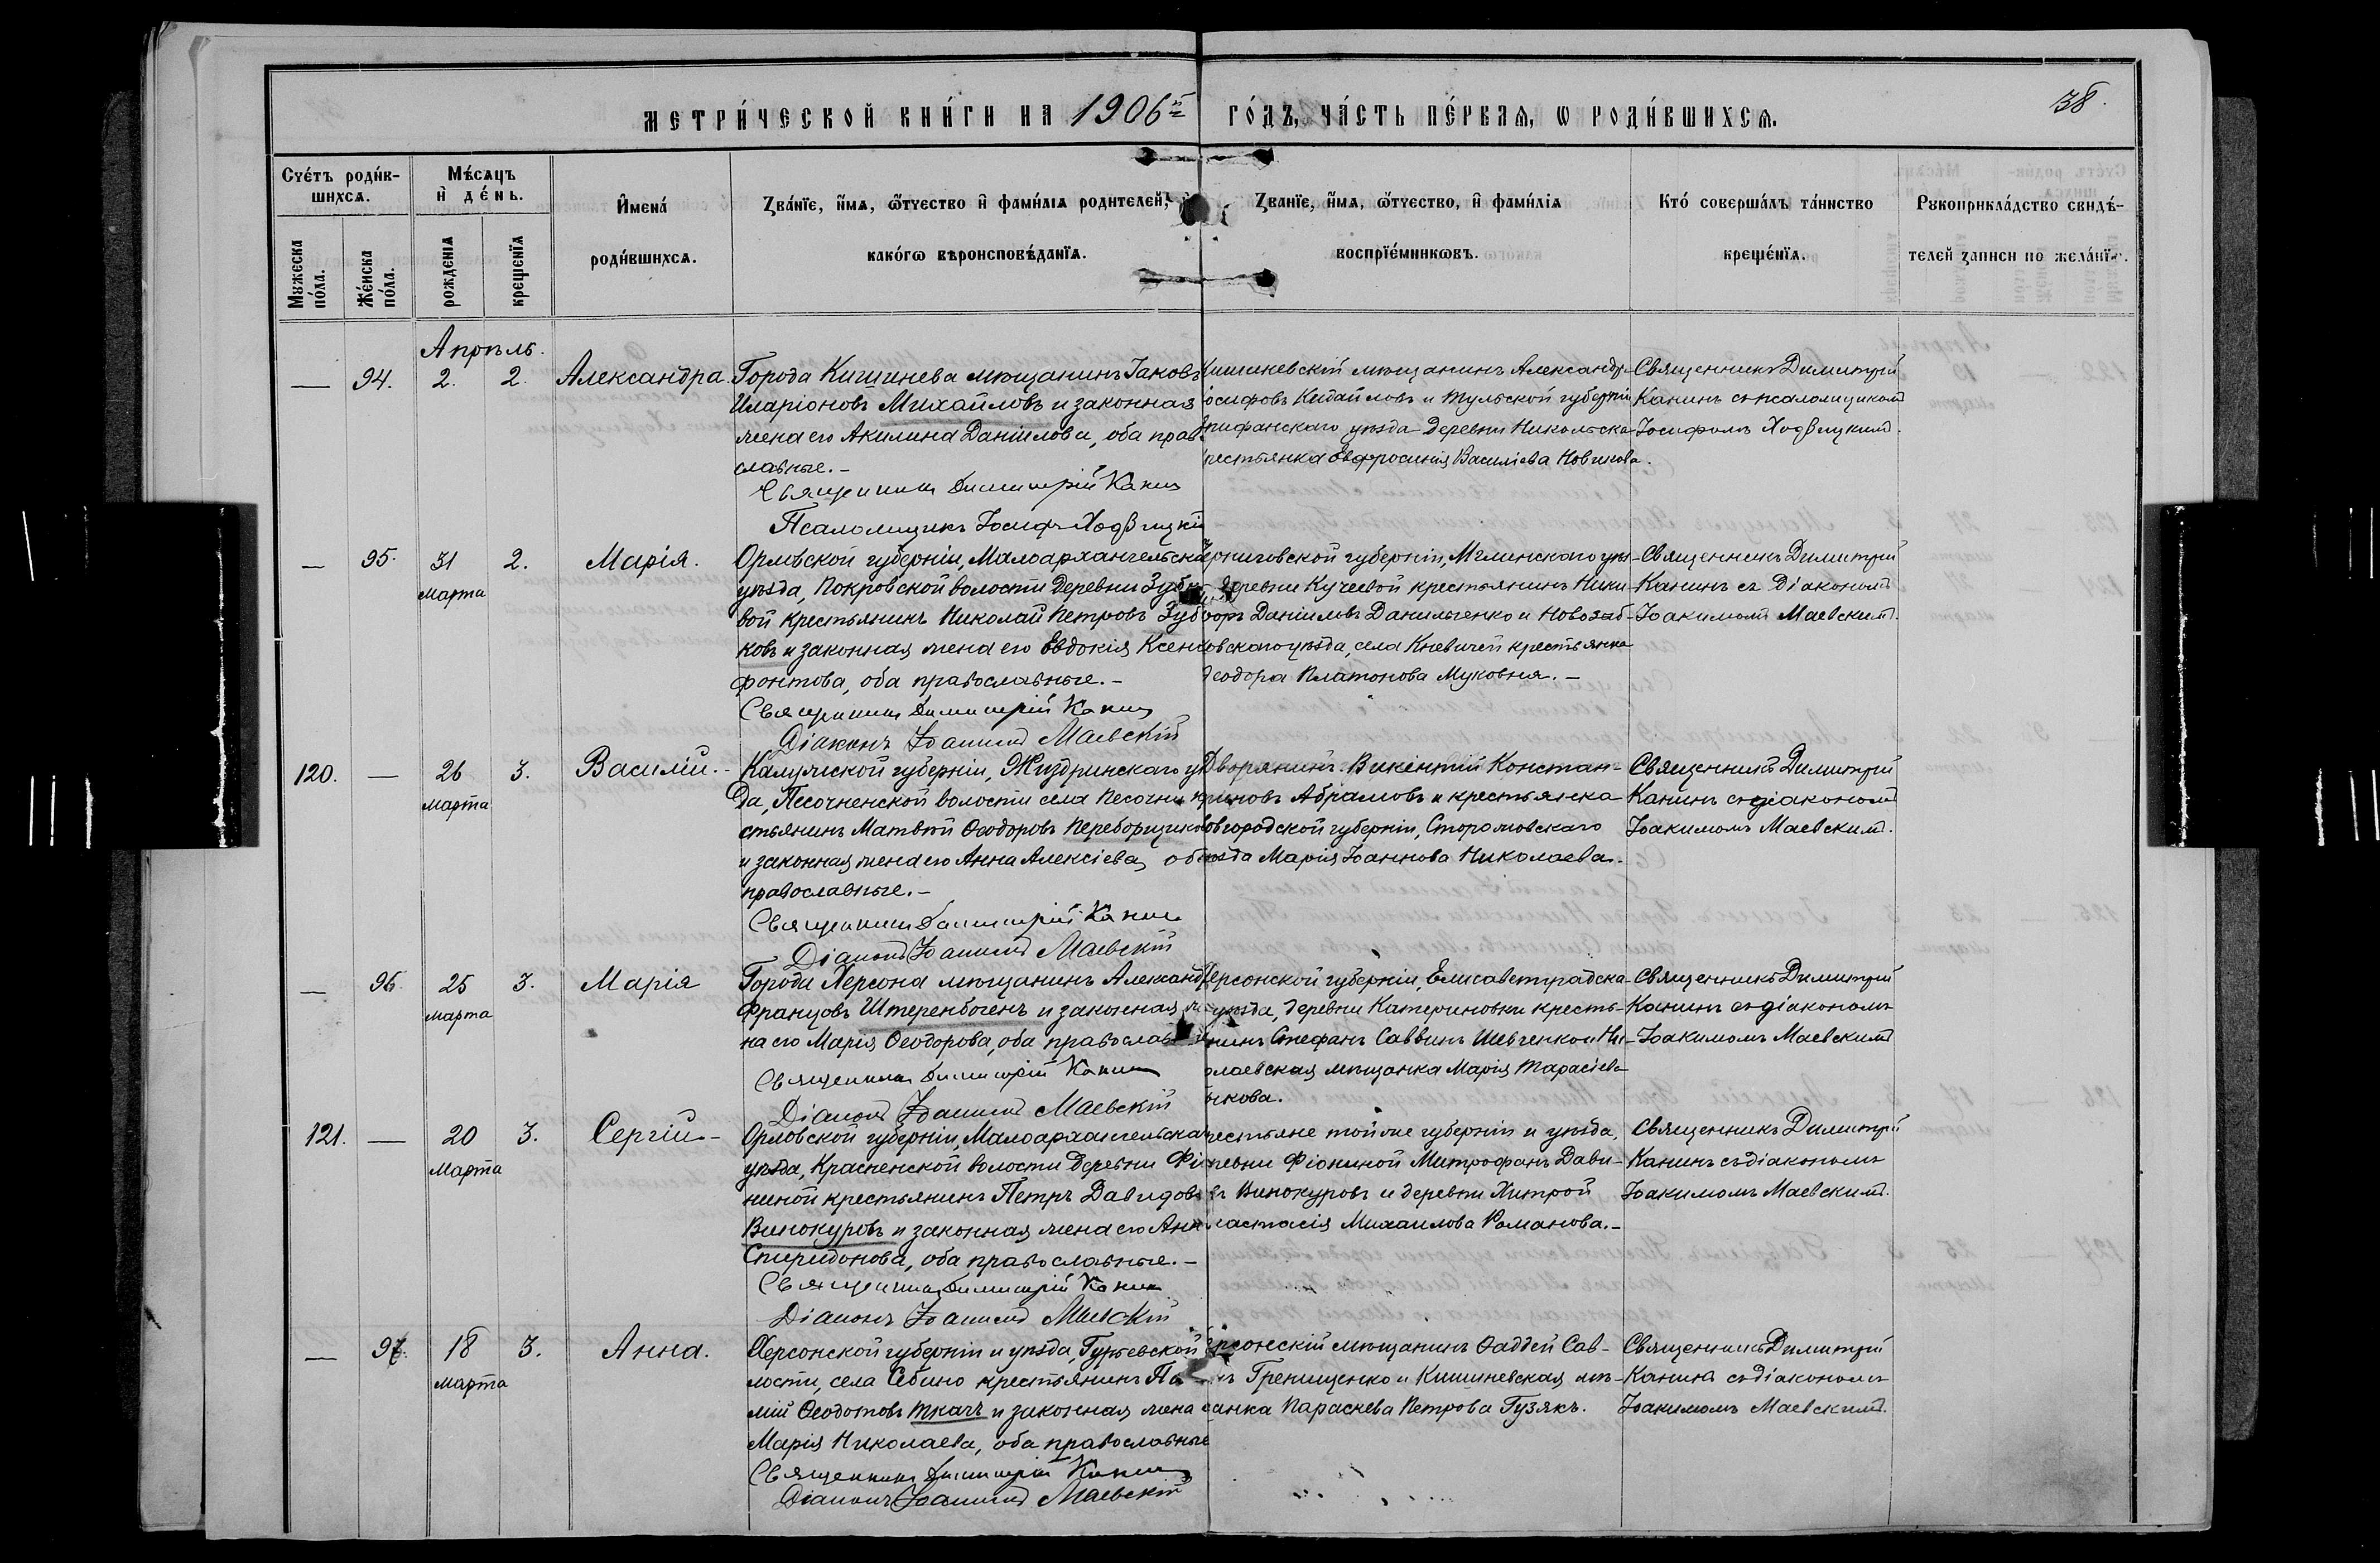 МЕТРИ́ЧЕСКОЙ КНИ́ГИ НА 1906й ГО́ДЪ, ЧА́СТЬ ПЕ́РВАЯ, Ѡ РОДИ́ВШИХСЯ.
38.
Сче́тъ роди́в-
шихся.
Мꙋжеска
по́ла.
Же́нска
по́ла.
Мѣ́сяцъ
и҆ де́нь.
рожденїя
крещенїя
И҆мена́
роди́вшихся.
Зва́нїе, и҆́мя, ѻ҆́тчество и҆ фами́лїя родителей,
како́гѡ вѣроисповѣ́данїя.
Зва́нїе, и҆́мя, ѻ҆́тчество, и҆ фами́лїя
воспрїе́мникѡвъ.
Кто́ соверша́лъ та́инство
креще́нїя.
Рꙋкоприкла́дство свидѣ́-
телей записи по жела́нїю.
Апрѣль.
— 94. 2. 2. Александра.
Города Кишинева мѣщанинъ Іаковъ
Иларіоновъ Михайловъ и законная
жена его Акилина Даніилова, оба право-
славные.-
Священникъ Димитрій Канинъ
Псаломщикъ Іосифъ Ходзицкій
Кишиневскій мѣщанинъ Александръ
осифовъ Кидайловъ и Тульской губерніи
пифанскаго уѣзда деревни Никольска
рестьянка Евфросинія Василіева Новикова.
Священникъ Димитрій
Канинъ съ псаломщикомъ
Іосифомъ Ходзицкимъ.
— 95. 31 2. Марія.
марта
Орловской губерніи, Малоархангельска
уѣзда, Покровской волости деревни Зубко-
вой крестьянинъ Николай Петровъ Зуб
ковъ и законная жена его Евдокія Ксено
фонтова, оба православные.-
Священникъ Димитрій Канинъ
Діаконъ Іоакимъ Маевскій
Черниговской губерніи, Мглинскаго уѣз-
деревни Кучеевой крестьянинъ Ники-
форъ Даніиловъ Данильченко и Новозыб-
овскаго уѣзда, села Кневичей крестьянка
Ѳеодора Платонова Муковня.-
Священникъ Димитрій
Канинъ съ Діакономъ
Іоакимомъ Маевскимъ.
120. — 26 3. Василій.-
марта
Калужской губерніи, Жиздринскаго уѣ
да, Песоченской волости села Песочни кр
стьянинъ Матвѣй Ѳеодоровъ Переборщиковъ
и законная жена его Анна Алексіева, оба
православные.-
Священникъ Димитрій Канинъ
Діаконъ Іоакимъ Маевскій
Дворянинъ Викентій Констан-
тиновъ Абрамовъ и крестьянка
овгородской губерніи,
уѣзда Марія Іоаннова Николаева.
Священникъ Димитрій
Канинъ съ діакономъ
Іоакимомъ Маевскимъ.
— 96. 25 3. Марія
марта
Города Херсона мѣщанинъ Александръ
Францовъ Штеренбогенъ и законная же
на его Марія Ѳеодорова, оба православные
Священникъ Димитрій Канинъ
Діаконъ Іоакимъ Маевскій
Херсонской губерніи, Елисаветградска-
уѣзда, деревни Катериновки кресть-
нинъ Стефанъ Саввинъ Шевченко и Ни-
олаевская мѣщанка Марія Тарасіева
ыкова.
Священникъ Димитрій
Канинъ съ діакономъ
Іоакимомъ Маевскимъ
121. — 20 3. Сергій.-
Марта
Орловской губерніи, Малоархангельскаго
уѣзда, Красненской волости деревни Фіо
ниной крестьянинъ Петръ Давидовъ
Винокуровъ и законная жена его Анна
Спиридонова, оба православные.-
Священникъ Димитрій Канинъ
Діаконъ Іоакимъ Маевскій
рестьяне той же губерніи и уѣзда,
ревни Фіониной Митрофанъ Дави-
въ Винокуровъ и деревни Хитрой
настасія Михаилова Романова.-
Священникъ Димитрій
Канинъ съ діакономъ
Іоакимомъ Маевскимъ.
— 97. 18 3. Анна.
марта
Херсонской губерніи и уѣзда, Гурьевской
лости, села Себино крестьянинъ
мій Ѳеодотовъ Ткачъ и законная жена
Марія Николаева, оба православные
Священникъ Димитрій Канинъ
Діаконъ Іоакимъ Маевскій
ерсонскій мѣщанинъ Ѳаддей Сав-
Гренищенко и Кишиневская мѣ-
щанка Параскева Петрова Гузякъ.
Священникъ Димитрій
Канинъ съ діакономъ
Іоакимомъ Маевскимъ.